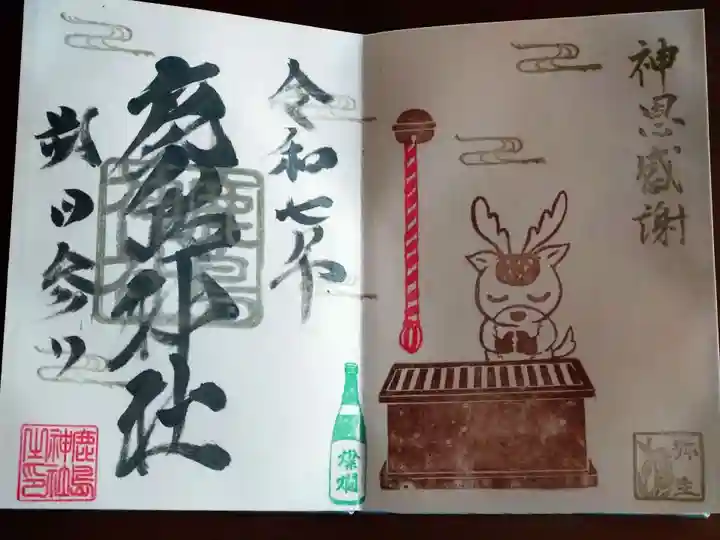 神恩感謝
令和七年
鹿島神社
朔日参り
燦爛
弥生
鹿島
神社
之印